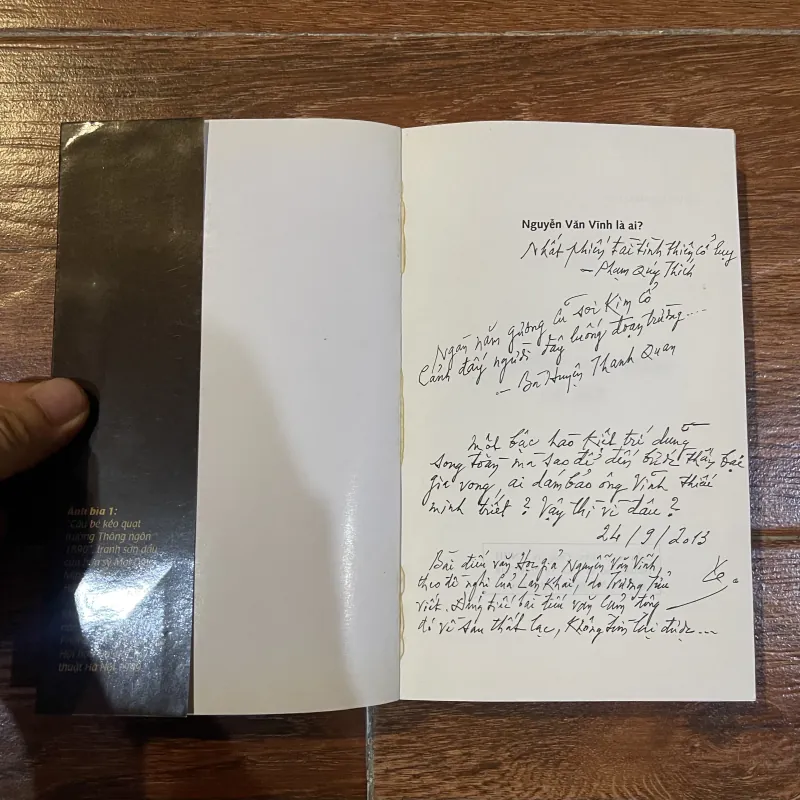 Ảnh bìa 1:
"Cậu bé kéo quạt
trường Thông ngôn
1890", tranh sơn dầu
thuật Hà Nội
Nguyễn Văn Vĩnh là ai?
Nhất phiến tài tình thiên cổ lụy
— Phạm Quý Thích
Ngàn năm gương cũ soi Kim Cổ
Cảnh đấy người đây luống đoạn trường....
— Bà Huyện Thanh Quan
Một bậc hào kiệt trí dũng
song toàn mà sao để đến bước thất bại
gia vong, ai dám bảo ông Vĩnh thiếu
minh triết? Vậy thì vì đâu?
24/9/2013
Bài điếu văn Học giả Nguyễn Văn Vĩnh,
theo đề nghị của Lan Khai, do Trương Tửu
viết. Đáng tiếc bài điếu văn cảm động
đó về sau thất lạc, không tìm lại được...